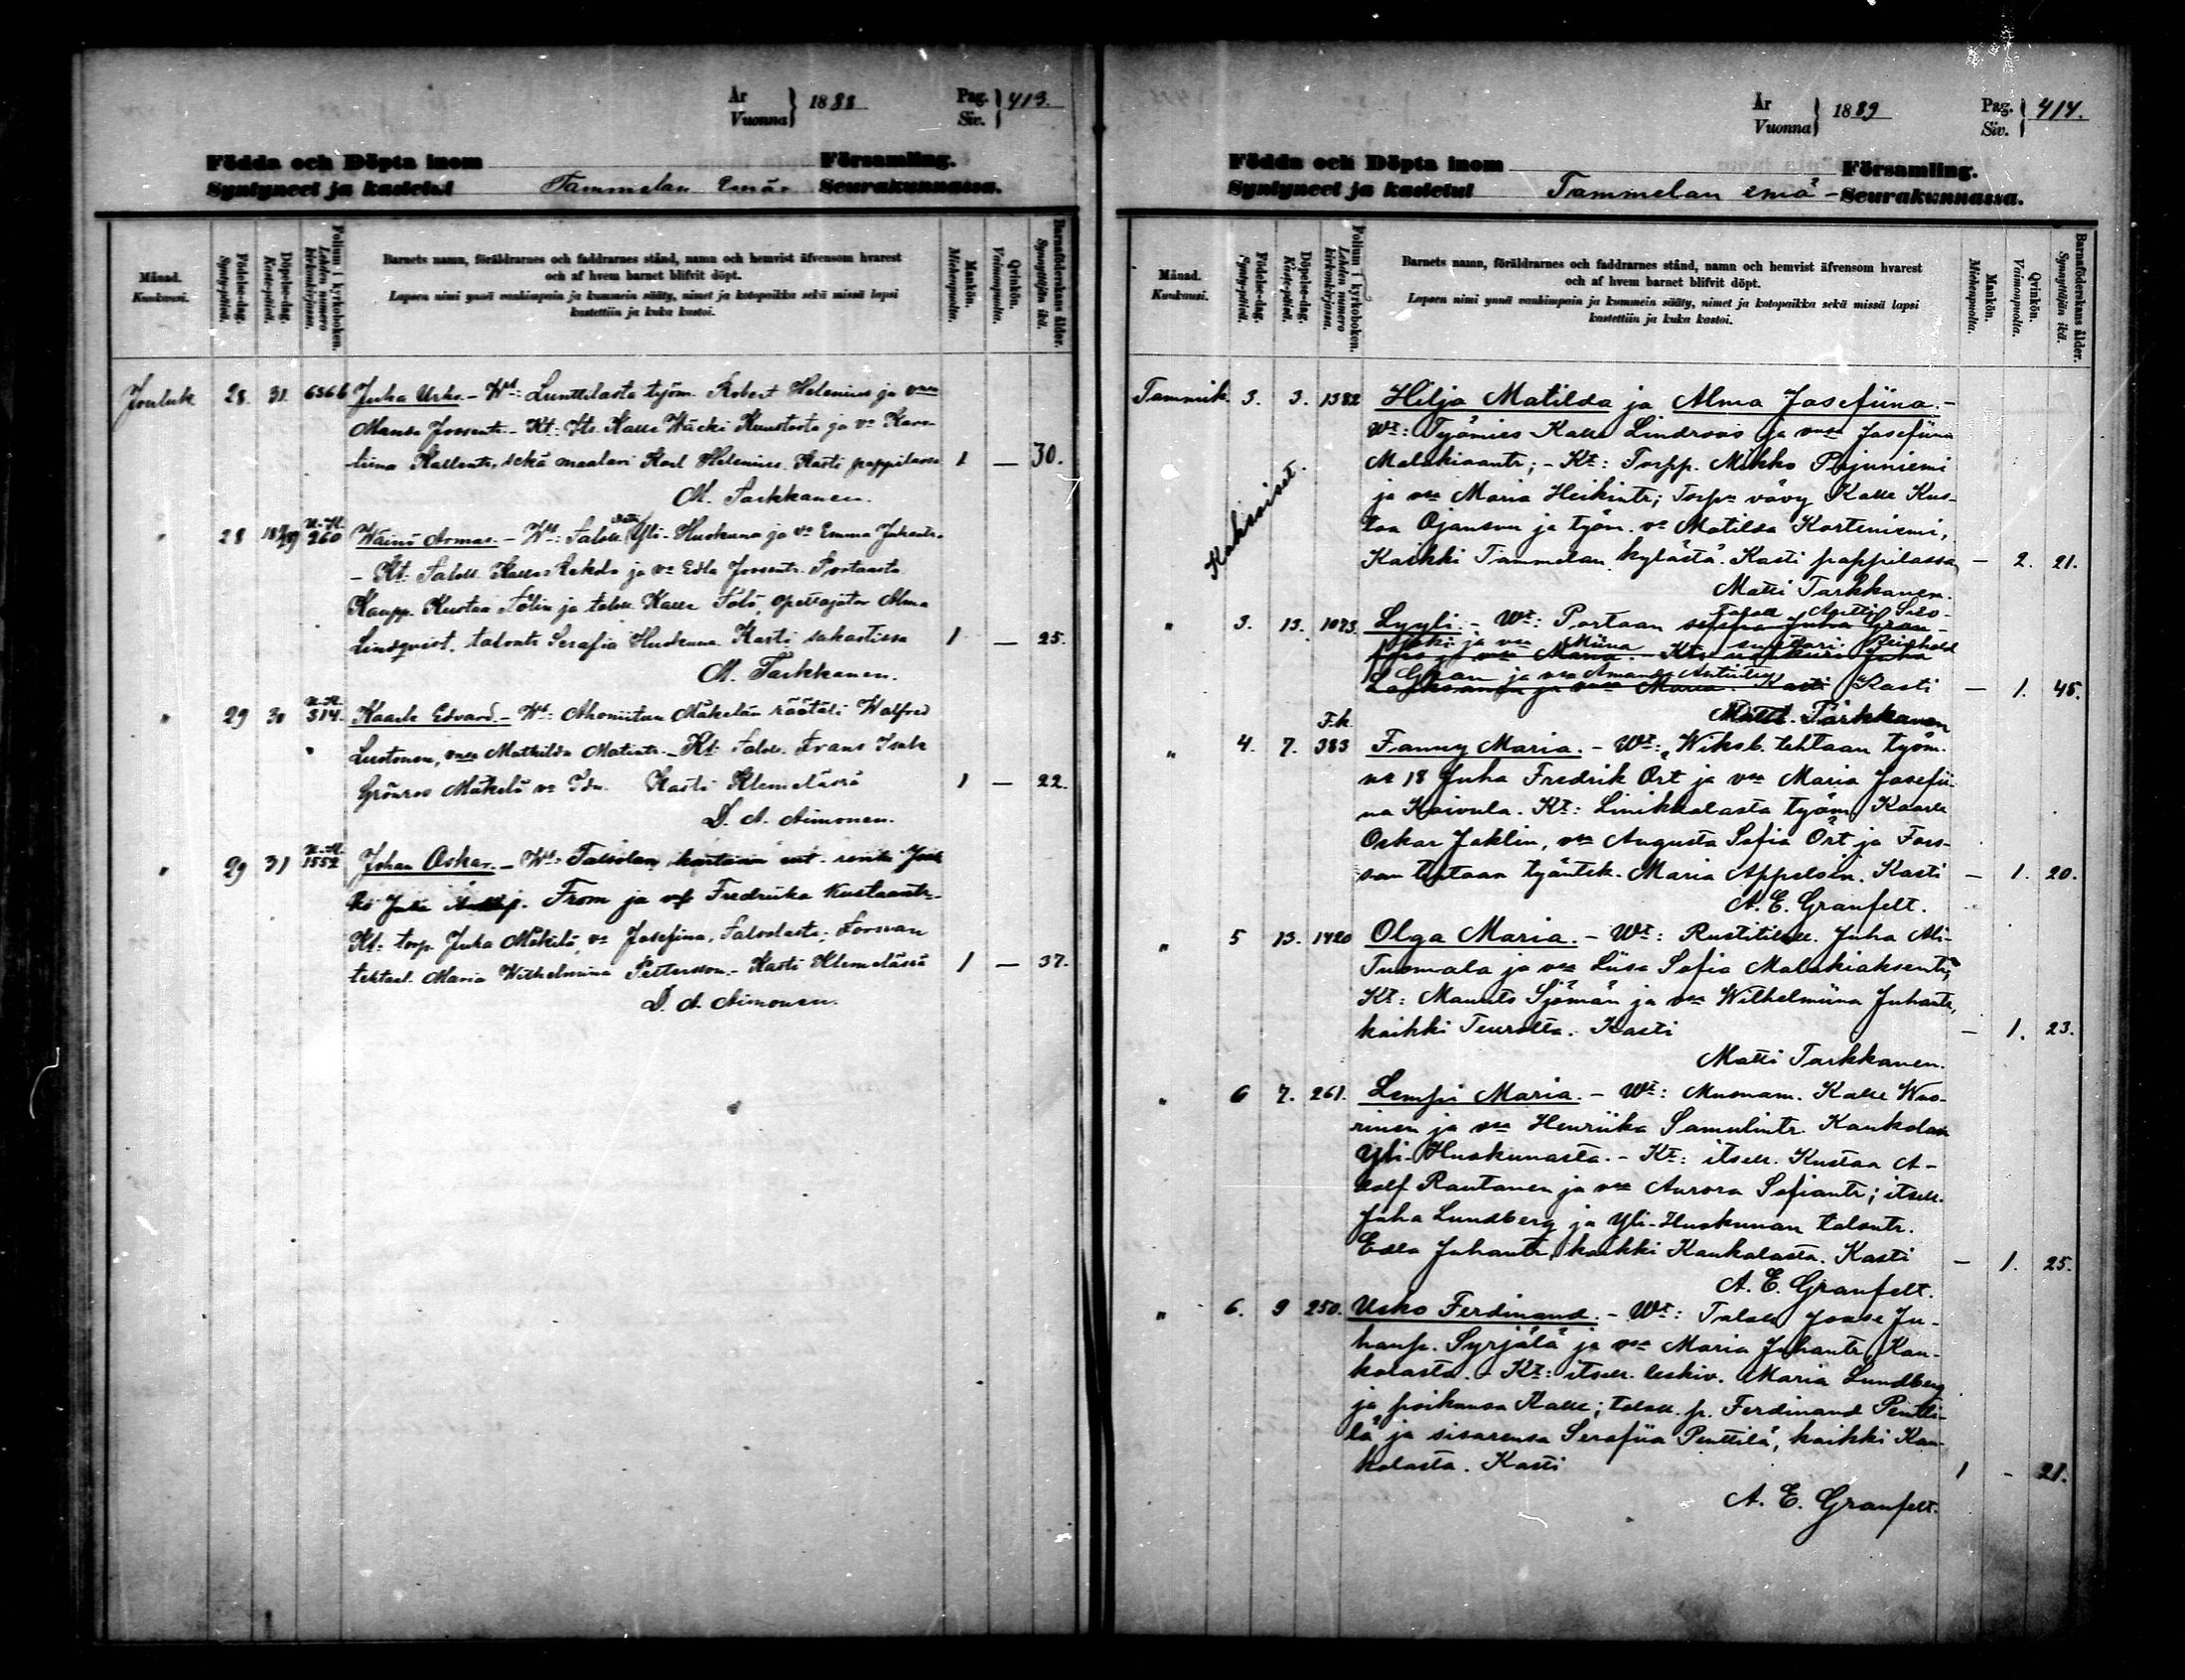 År
Vuonna } 1888 Pag.
Siv. } 413.
Födda och Döpta inom Församling.
Syntyneet ja kastetut Tammelan Emä- Seurakunnassa.
Månad.
Kuukausi.
Födelse-dag.
Synty-päivä.
Döpelse-dag.
Kaste-päivä.
Folium i kyrkoboken.
Lehden numero kirkonkirjassa.
Barnets namn, föräldrarnes och faddrarnes stånd, namn och hemvist äfvensom hvarest
och af hvem barnet blifvit döpt.
Lapsen nimi ynnä vanhimpain ja kummein sääty, nimet ja kotopaikka sekä missä lapsi
kastettiin ja kuka kastoi.
Mankön.
Miehenpuolta.
Qvinkön.
Vaimonpuolta.
Barnaföderskans ålder.
Synnyttäjän ikä.
Jouluk 28. 31. 636b Juha Urho. - Wt: Lunttilasta työm. Robert Helenius ja vmo
Manda Joosentr. - Kt: Kalle Mäcki ja vo Karo-
liina Kallentr, sekä maalari Karl Helenius. Kasti pappilassa 1 — 30.
M. Tarkkanen.
" 28 260 Wäinö Armas. - Wt: Taloll. Yli-Huskuna ja vo Emma Juhantr.
- Kt: Taloll. Kalle Rekola ja vo Edla Joosentr. Portaasta
Kaupp. Kustaa Tölin ja taloll. Kalle Tolo, opettajatar Alma
Lindqvist, talontr Serafia Huskuna. Kasti sakastissa 1 — 25.
M. Tarkkanen.
" 29 30 514. Kaarle Edvard. - Wt: Ahoniitun Mäkelän räätäli Walfred
Lustonen, vmo Mathilda Matintr. - Kt: Taloll. Frans Isak
Grönros Mäkelä vo Ida. Kasti Klemelässä 1 — 22.
D. A. Aimonen.
" 29 31 1552 Johan Oskar. - Wt:
From ja Fredrika Kustaantr.
Kt: torp. Juha Mäkelä, vo Josefina, Forssan
tehtaal. Maria Wilhelmina Pettersson. - Kasti Klemelässä 1 — 37.
D. A. Aimonen.
År
Vuonna } 1889 Pag.
Siv. } 414.
Födda och Döpta inom Församling.
Syntyneet ja kastetut Tammelan emä- Seurakunnassa.
Månad.
Kuukausi.
Födelse-dag.
Synty-päivä.
Döpelse-dag.
Kaste-päivä.
Folium i kyrkoboken.
Lehden numero kirkonkirjassa.
Barnets namn, föräldrarnes och faddrarnes stånd, namn och hemvist äfvensom hvarest
och af hvem barnet blifvit döpt.
Lapsen nimi ynnä vanhimpain ja kummein sääty, nimet ja kotopaikka sekä missä lapsi
kastettiin ja kuka kastoi.
Mankön.
Miehenpuolta.
Qvinkön.
Vaimonpuolta.
Barnaföderskans ålder.
Synnyttäjän ikä.
Tammik. 3. 3. 1382 Hilja Matilda ja Alma Josefiina. -
Kaksoiset.
Wt: Työmies Kalle Lindroos ja vmo Josefiina
Malakiaantr; - Kt: Torpp. Mikko Pajuniemi
ja vmo Maria Heikintr; Torpn vävy Kalle Kus-
taa Ojansuu ja työm. vo Matilda Korteniemi,
Kaikki Tammelan kylästä. Kasti pappilassa — 2. 21.
Matti Tarkkanen.
" 3. 13. 1073. Lyyli. - Wt: Portaan seppä Juha Gran-
Taloll Antti Silo-
joki ja vmo Miina suutari Reinhold
fors ja vmo Maria. Kt:
Gran ja vmo Amanda Antintr
ja vmo Maria. Kasti Kasti — 1. 45.
Matti Tarkkanen
F.k.
" 4. 7. 383 Fanny Maria. - Wt: Wiksb. tehtaan työm.
no 18 Juha Fredrik Ört ja vmo Maria Josefii-
na Koivula. Kt: Linikkalasta työm. Kaarle
Oskar Jaklin, vmo Augusta Sofia Ört ja Fors-
san tehtaan työntek. Maria Appelsin. Kasti — 1. 20.
A. E. Granfelt.
" 5 13. 1420 Olga Maria. - Wt: Rustitilall. Juha Ali-
Tuomala ja vmo Liisa Sofia Malakiaksentr;
Kt: Maunts Sjöman ja vmo Wilhelmiina Juhantr,
kaikki Teurolta. Kasti — 1. 23.
Matti Tarkkanen.
" 6 7. 261. Lempi Maria. - Wt: Muonam. Kalle Wuo-
rinen ja vmo Henriika Samulintr. Kaukolan
Yli-Huskunasta. - Kt: itsell. Kustaa A-
dolf Rautanen ja vmo Aurora Sofiantr; itsell.
Juha Lundberg ja Yli-Huskunan talontr.
Edla Juhantr, kaikki Kaukolasta. Kasti — 1. 25.
A. E. Granfelt.
" 6. 9 250. Urho Ferdinand. - Wt: Taloll Joose Ju-
hanp. Syrjälä ja vmo Maria Juhantr, Kau-
kolasta. - Kt: itsell. leskiv. Maria Lundberg
ja poikansa Kalle; taloll. p. Ferdinand Pentti-
lä ja sisarensa Serafiia Penttilä, kaikki Kau-
kolasta. Kasti 1 - 21.
A. E. Granfelt.